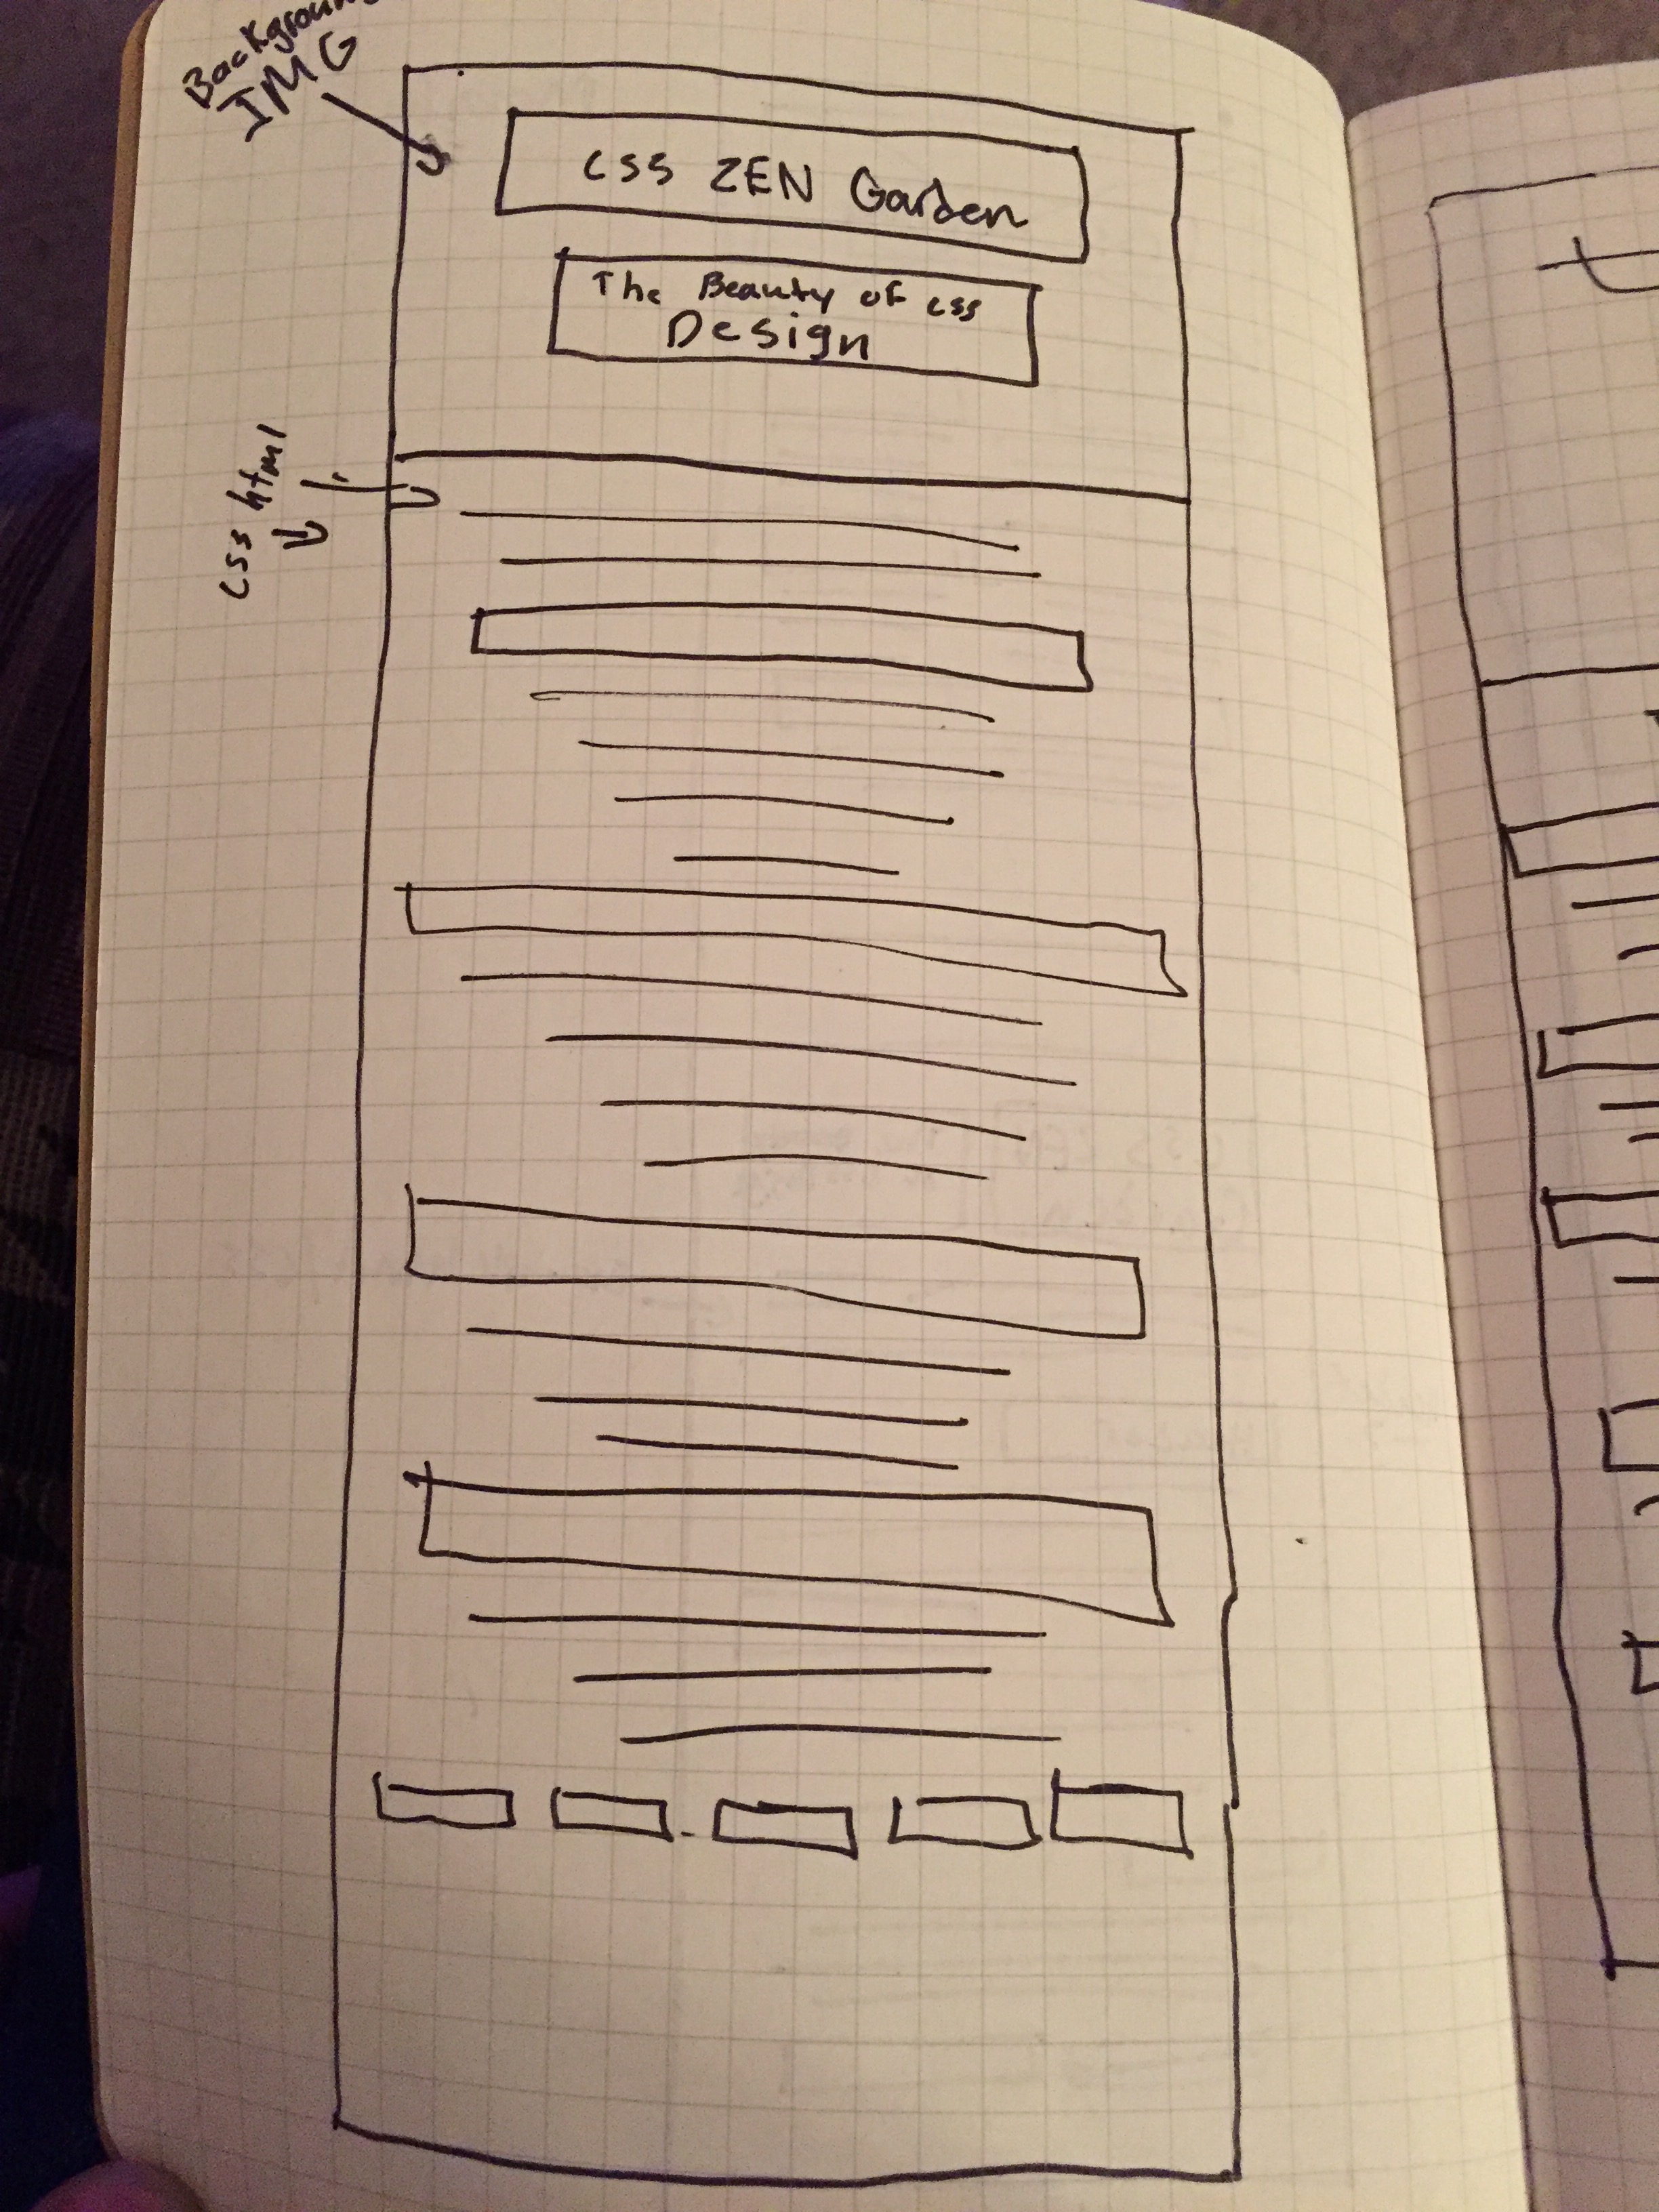 Background
IMG
CSS ZEN Garden
The Beauty of css
Design
css html